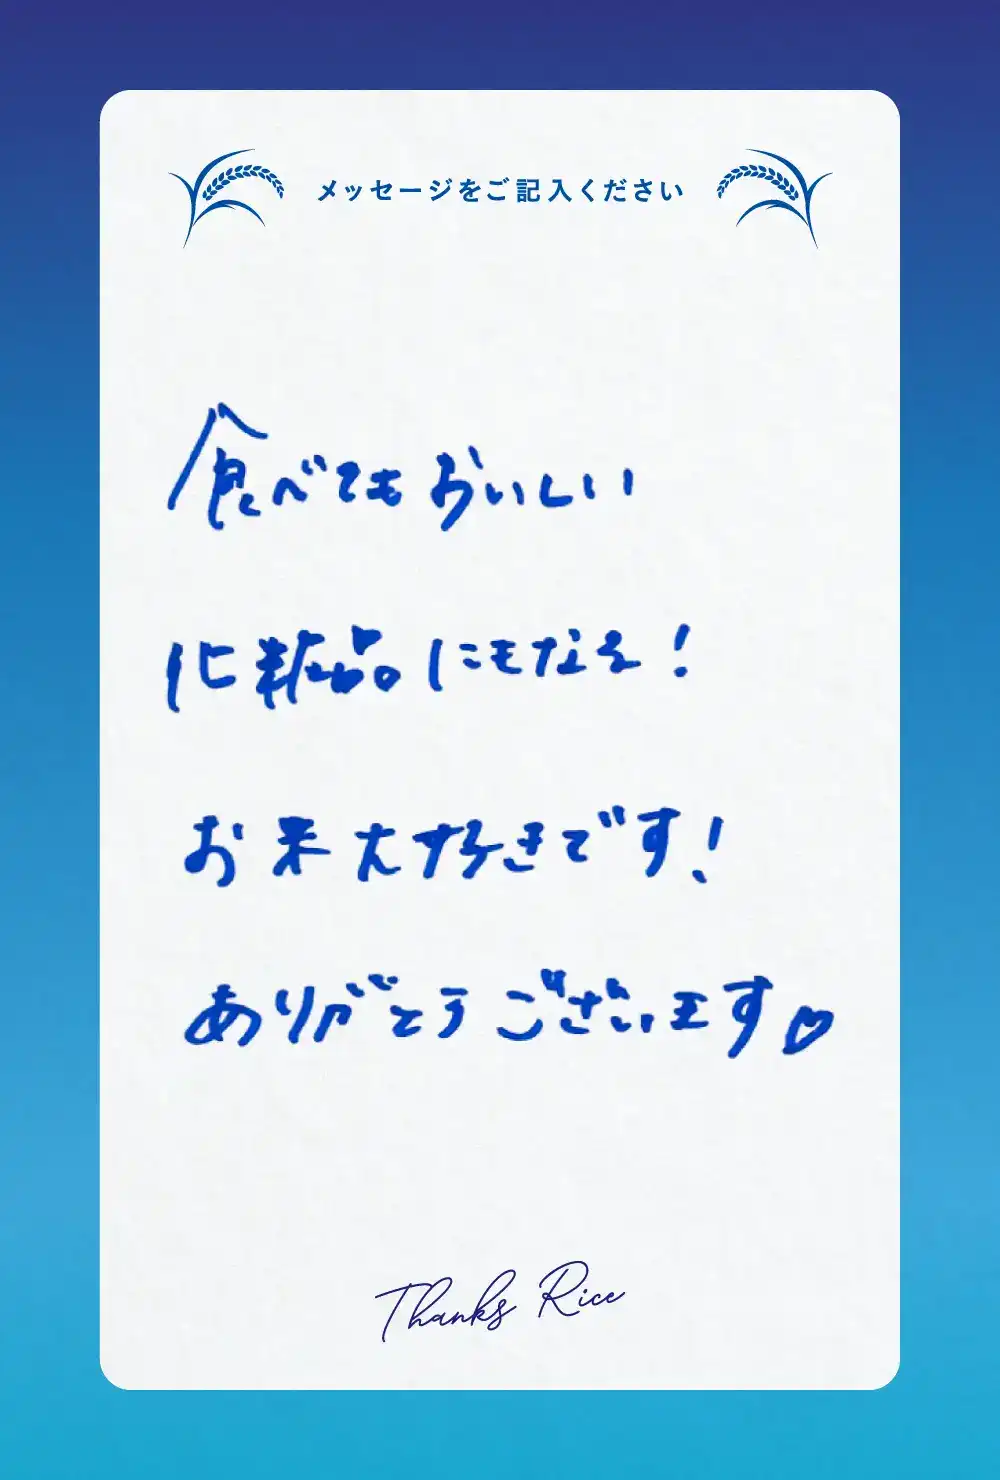 メッセージをご記入ください
食べてもおいしい
化粧品にもなる!
お米大好きです!
ありがとうございます♡
Thanks Rice